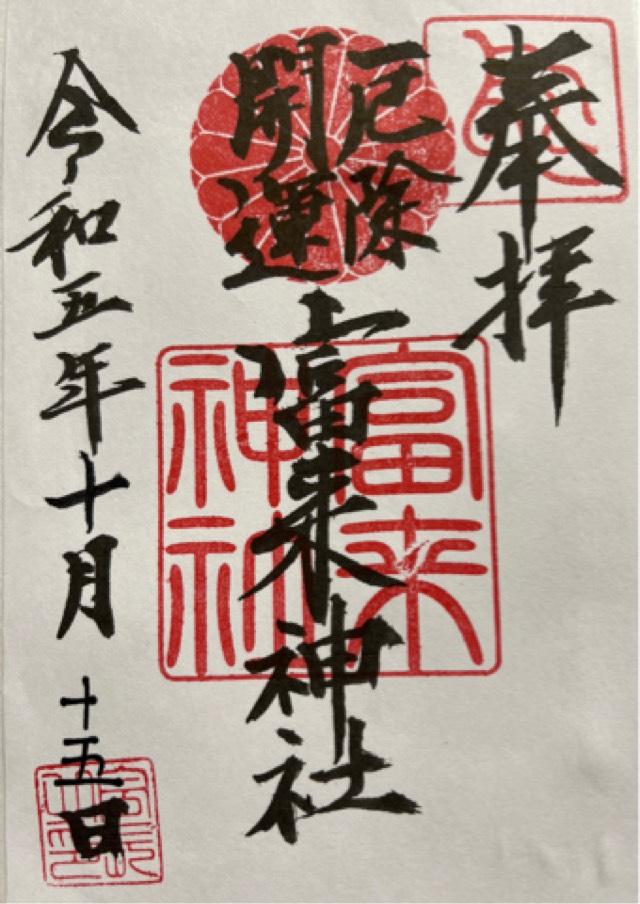 奉拝
厄除
開運
上富来神社
富来
神社
令和五年十月十五日